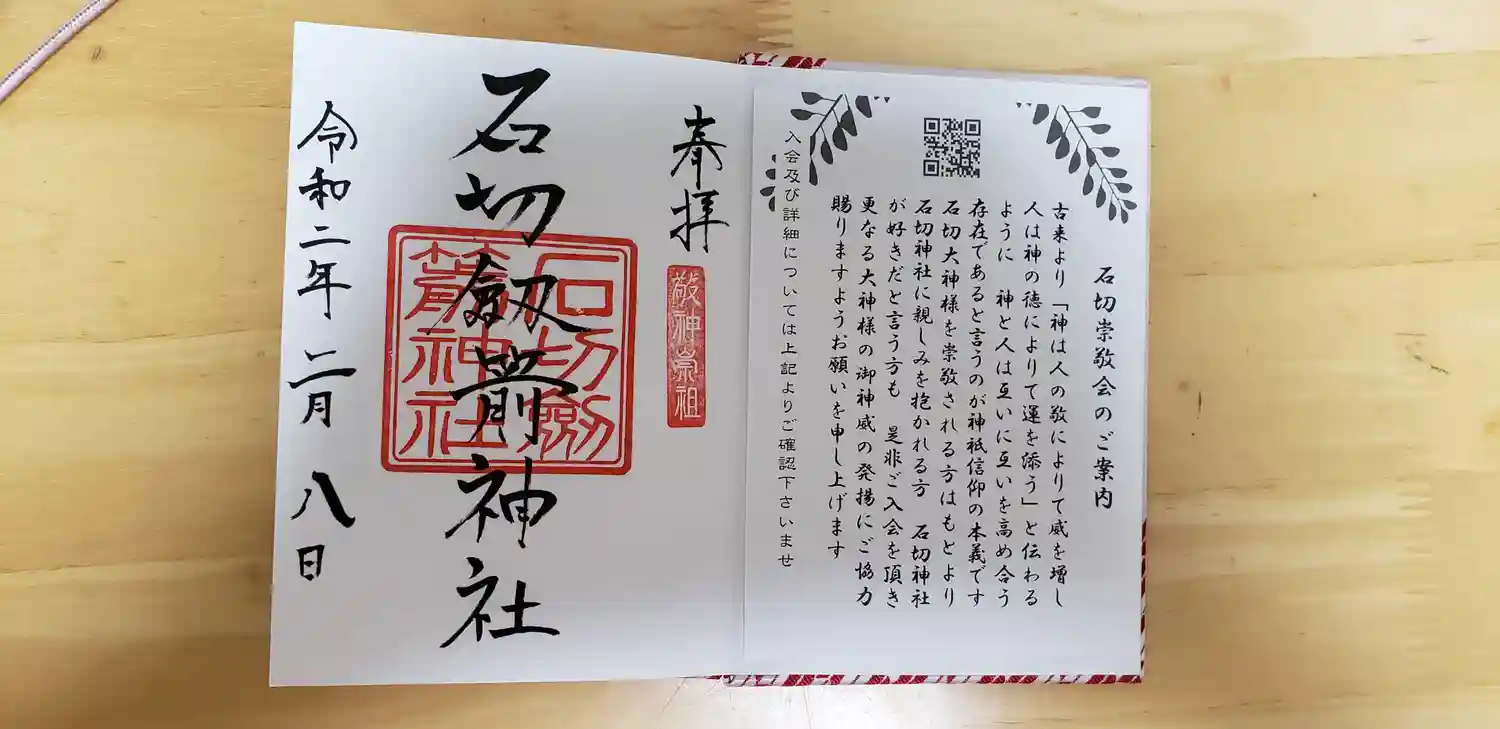 石切崇敬会のご案内
古来より「神は人の敬によりて威を増し
人は神の徳によりて運を添う」と伝わる
ように　神と人は互いに互いを高め合う
存在であると言うのが神祇信仰の本義です
石切大神様を崇敬される方はもとより
石切神社に親しみを抱かれる方　石切神社
が好きだと言う方も　是非ご入会を頂き
更なる大神様の御神威の発揚にご協力
賜りますようお願いを申し上げます
入会及び詳細については上記よりご確認下さいませ
奉拝
敬神崇祖
石切劔箭神社
石切劔
箭神社
令和二年二月八日